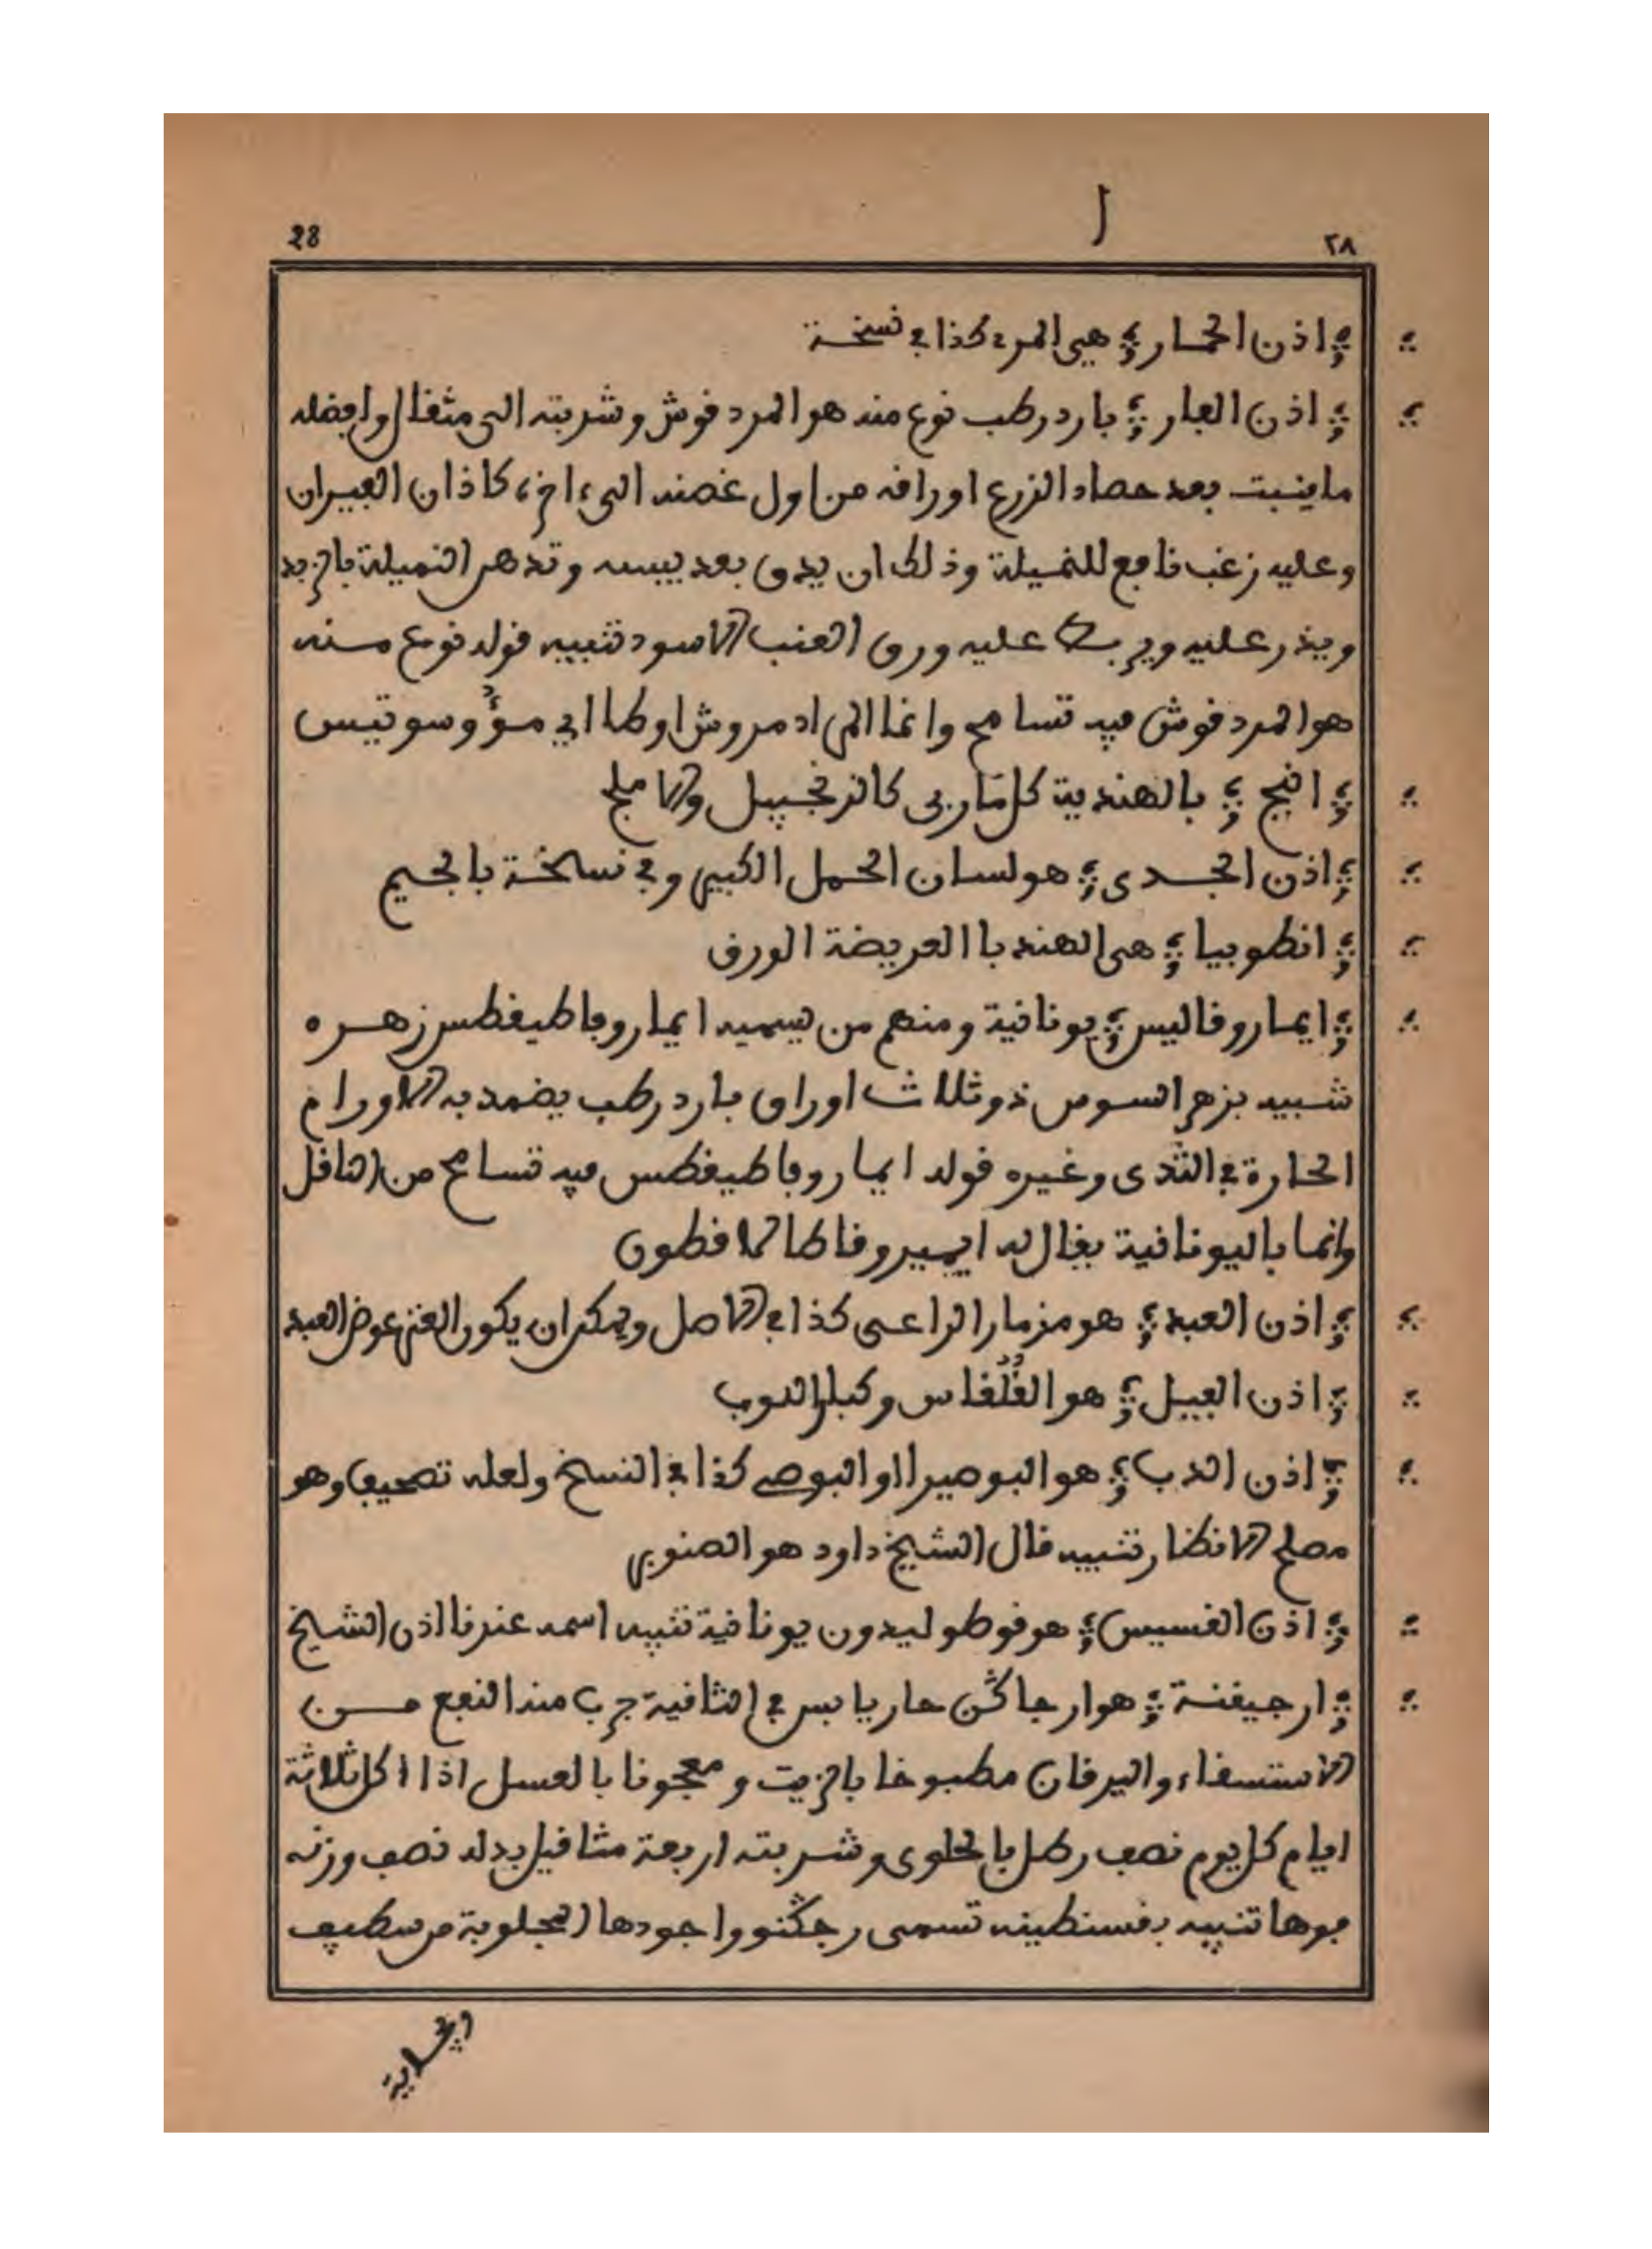 28 ا ٢٨
اذن الحمار هي المرء كذا في نسخة
اذن الفار بارد رطب نوع منه هو المردقوش وشربته الى مثقال وافضله
ما ينبت بعد حصاد الزرع اوراقه من اول غصنه الى ءاخره كاذان الفيران
وعليه زغب نافع للنميلة وذلك ان يدق بعد يبسه وتدهر النميلة بالزبد
ويذر عليه ويربط عليه ورق العنب الاسود تنبيه قوله نوع منه
هو المردقوش فيه تسامح وانما المراد مروش اوطا اي مؤوسوتيس
انبج بالهندية كل مَا ربى كالزنجبيل والاملج
اذن الجدى هو لسان الحمل الكبير وفي نسخة بالجيم
انطوبيا هى الهندبا العريضة الورق
ايماروقاليس يونانية ومنهم من يسميه ايماروباطيغطس زهره
شبيه بزهر السوس ذو ثلاث اوراق بارد رطب يضمد به الاورام
الحارة في الثدى وغيره قوله ايماروباطيغطس فيه تسامح من الناقل
وانما باليونانية يقال له ايميروقاطالاقطون
اذن العبد هو مزمار الراعى كذا في الاصل ويمكن ان يكون الغنم عوض العبد
اذن الفيل هو القُلْقاس وكبار اللوب
اذن الدب هو البوصيرا او البوصى كذا في النسخ ولعله تصحيف وهو
مصلح الانظار تنبيه قال الشيخ داود هو الصنوبر
اذن القسيس هو قوطوليدون يونانية تنبيه اسمه عندنا اذن الشيخ
ارجيقنة هو ارجاكن حار يابس في الثانية جرب منه النفع مــن
الاستسقاء واليرقان مطبوخا بالزيت ومعجونا بالعسل اذا اكل ثلاثة
ايام كل يوم نصف رطل بالحلوى وشربته اربعة مثاقيل بدله نصف وزنه
فوها تنبيه بقسنطينه تسمى رجكنو واجودها المجلوبة من سطيف
وبجاية